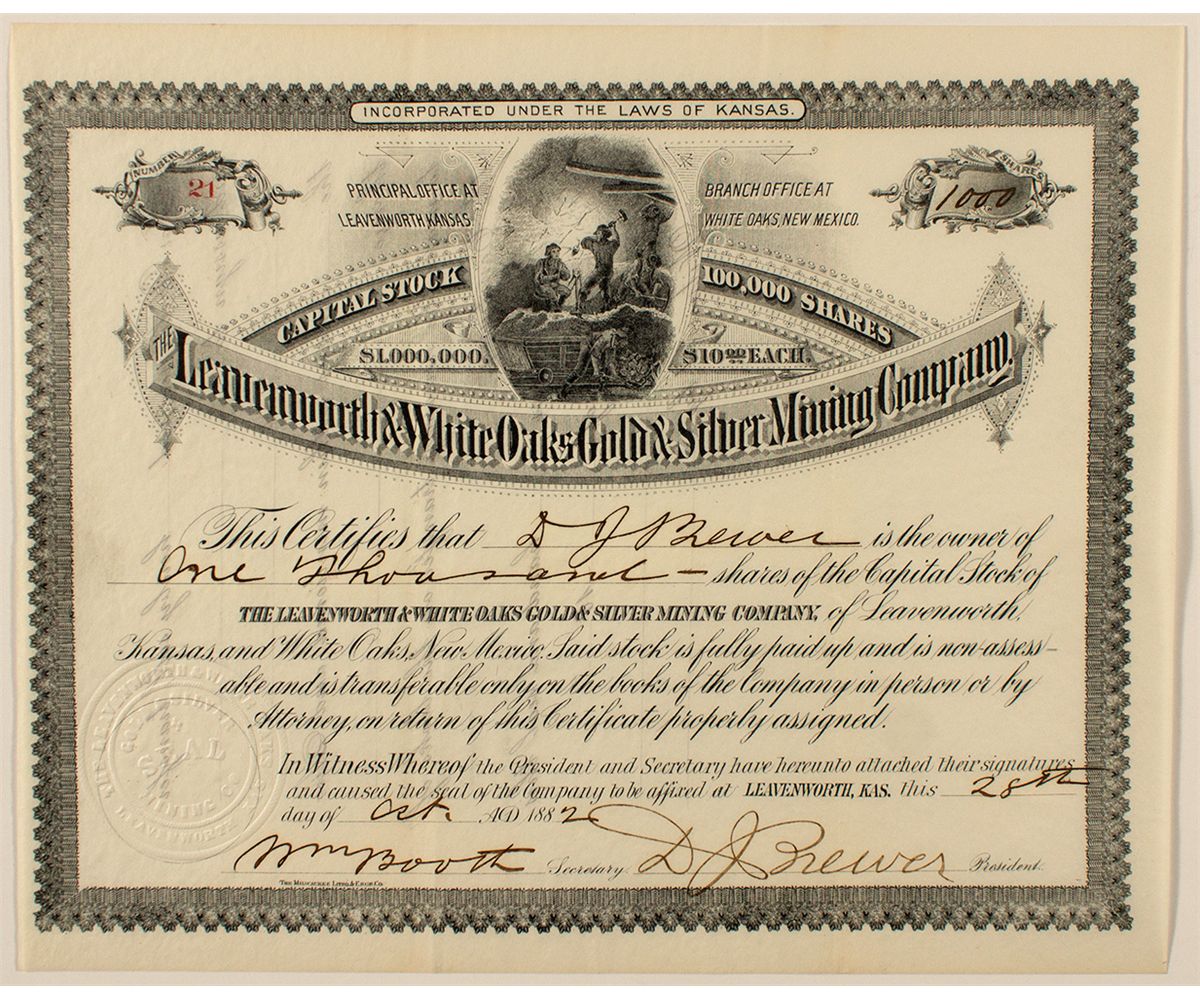 INCORPORATED UNDER THE LAWS OF KANSAS.
NUMBER
21
PRINCIPAL OFFICE AT
LEAVENWORTH, KANSAS.
BRANCH OFFICE AT
WHITE OAKS, NEW MEXICO.
SHARES
1000
CAPITAL STOCK
100,000 SHARES
$1,000,000.
$10.00 EACH.
THE Leavenworth & White Oaks Gold & Silver Mining Company.
This Certifies that D J Brewer is the owner of
One Thousand — shares of the Capital Stock of
THE LEAVENWORTH & WHITE OAKS GOLD & SILVER MINING COMPANY, of Leavenworth,
Kansas, and White Oaks, New Mexico. Said stock is fully paid up and is non-assess-
able and is transferable only on the books of the Company in person or by
Attorney, on return of this Certificate properly assigned.
In Witness Whereof the President and Secretary have hereunto attached their signatures
and caused the seal of the Company to be affixed at LEAVENWORTH, KAS. this 28th
day of Oct. AD 1882
Wm Booth Secretary. D J Brewer President.
THE MILWAUKEE LITHO. & ENGR. CO.